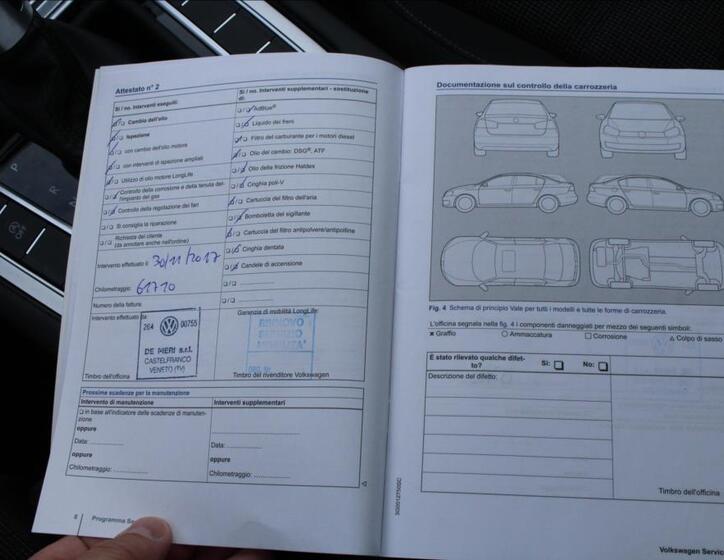 Attestato n° 2
Sì / no. Interventi eseguiti:
Cambio dell'olio
Ispezione
con cambio dell'olio motore
con interventi di ispezione ampliati
Utilizzo di olio motore LongLife
Controllo della corrosione e della tenuta dell'impianto del gas
Controllo della regolazione dei fari
Si consiglia la riparazione
Richiesta del cliente
(da annotare anche nell'ordine)
Intervento effettuato il: 30/11/2017
Chilometraggio: 61710
Numero della fattura:
Intervento effettuato da:
26A 00755
DE PIERI s.r.l.
CASTELFRANCO
VENETO (TV)
Timbro dell'officina
Sì / no. Interventi supplementari - sostituzione
di:
AdBlue®
Liquido dei freni
Filtro del carburante per i motori diesel
Olio del cambio: DSG®, ATF
Olio della frizione Haldex
Cinghia poli-V
Cartuccia del filtro dell'aria
Bomboletta del sigillante
Cartuccia del filtro antipolvere/antipolline
Cinghia dentata
Candele di accensione
Garanzia di mobilità LongLife:
RINNOVO
SERVIZIO
MOBILITA'
Timbro del rivenditore Volkswagen
Prossime scadenze per la manutenzione
Intervento di manutenzione
in base all'indicatore delle scadenze di manutenzione
oppure
Data: ................
oppure
Chilometraggio: ................
Interventi supplementari
................
Data: ................
oppure
Chilometraggio: ................
8 Programma
Documentazione sul controllo della carrozzeria
Fig. 4 Schema di principio Vale per tutti i modelli e tutte le forme di carrozzeria.
L'officina segnala nella fig. 4 i componenti danneggiati per mezzo dei seguenti simboli:
× Graffio ○ Ammaccatura □ Corrosione △ Colpo di sasso
È stato rilevato qualche difetto?
Sì: No:
Descrizione del difetto:
Timbro dell'officina
Volkswagen Servic